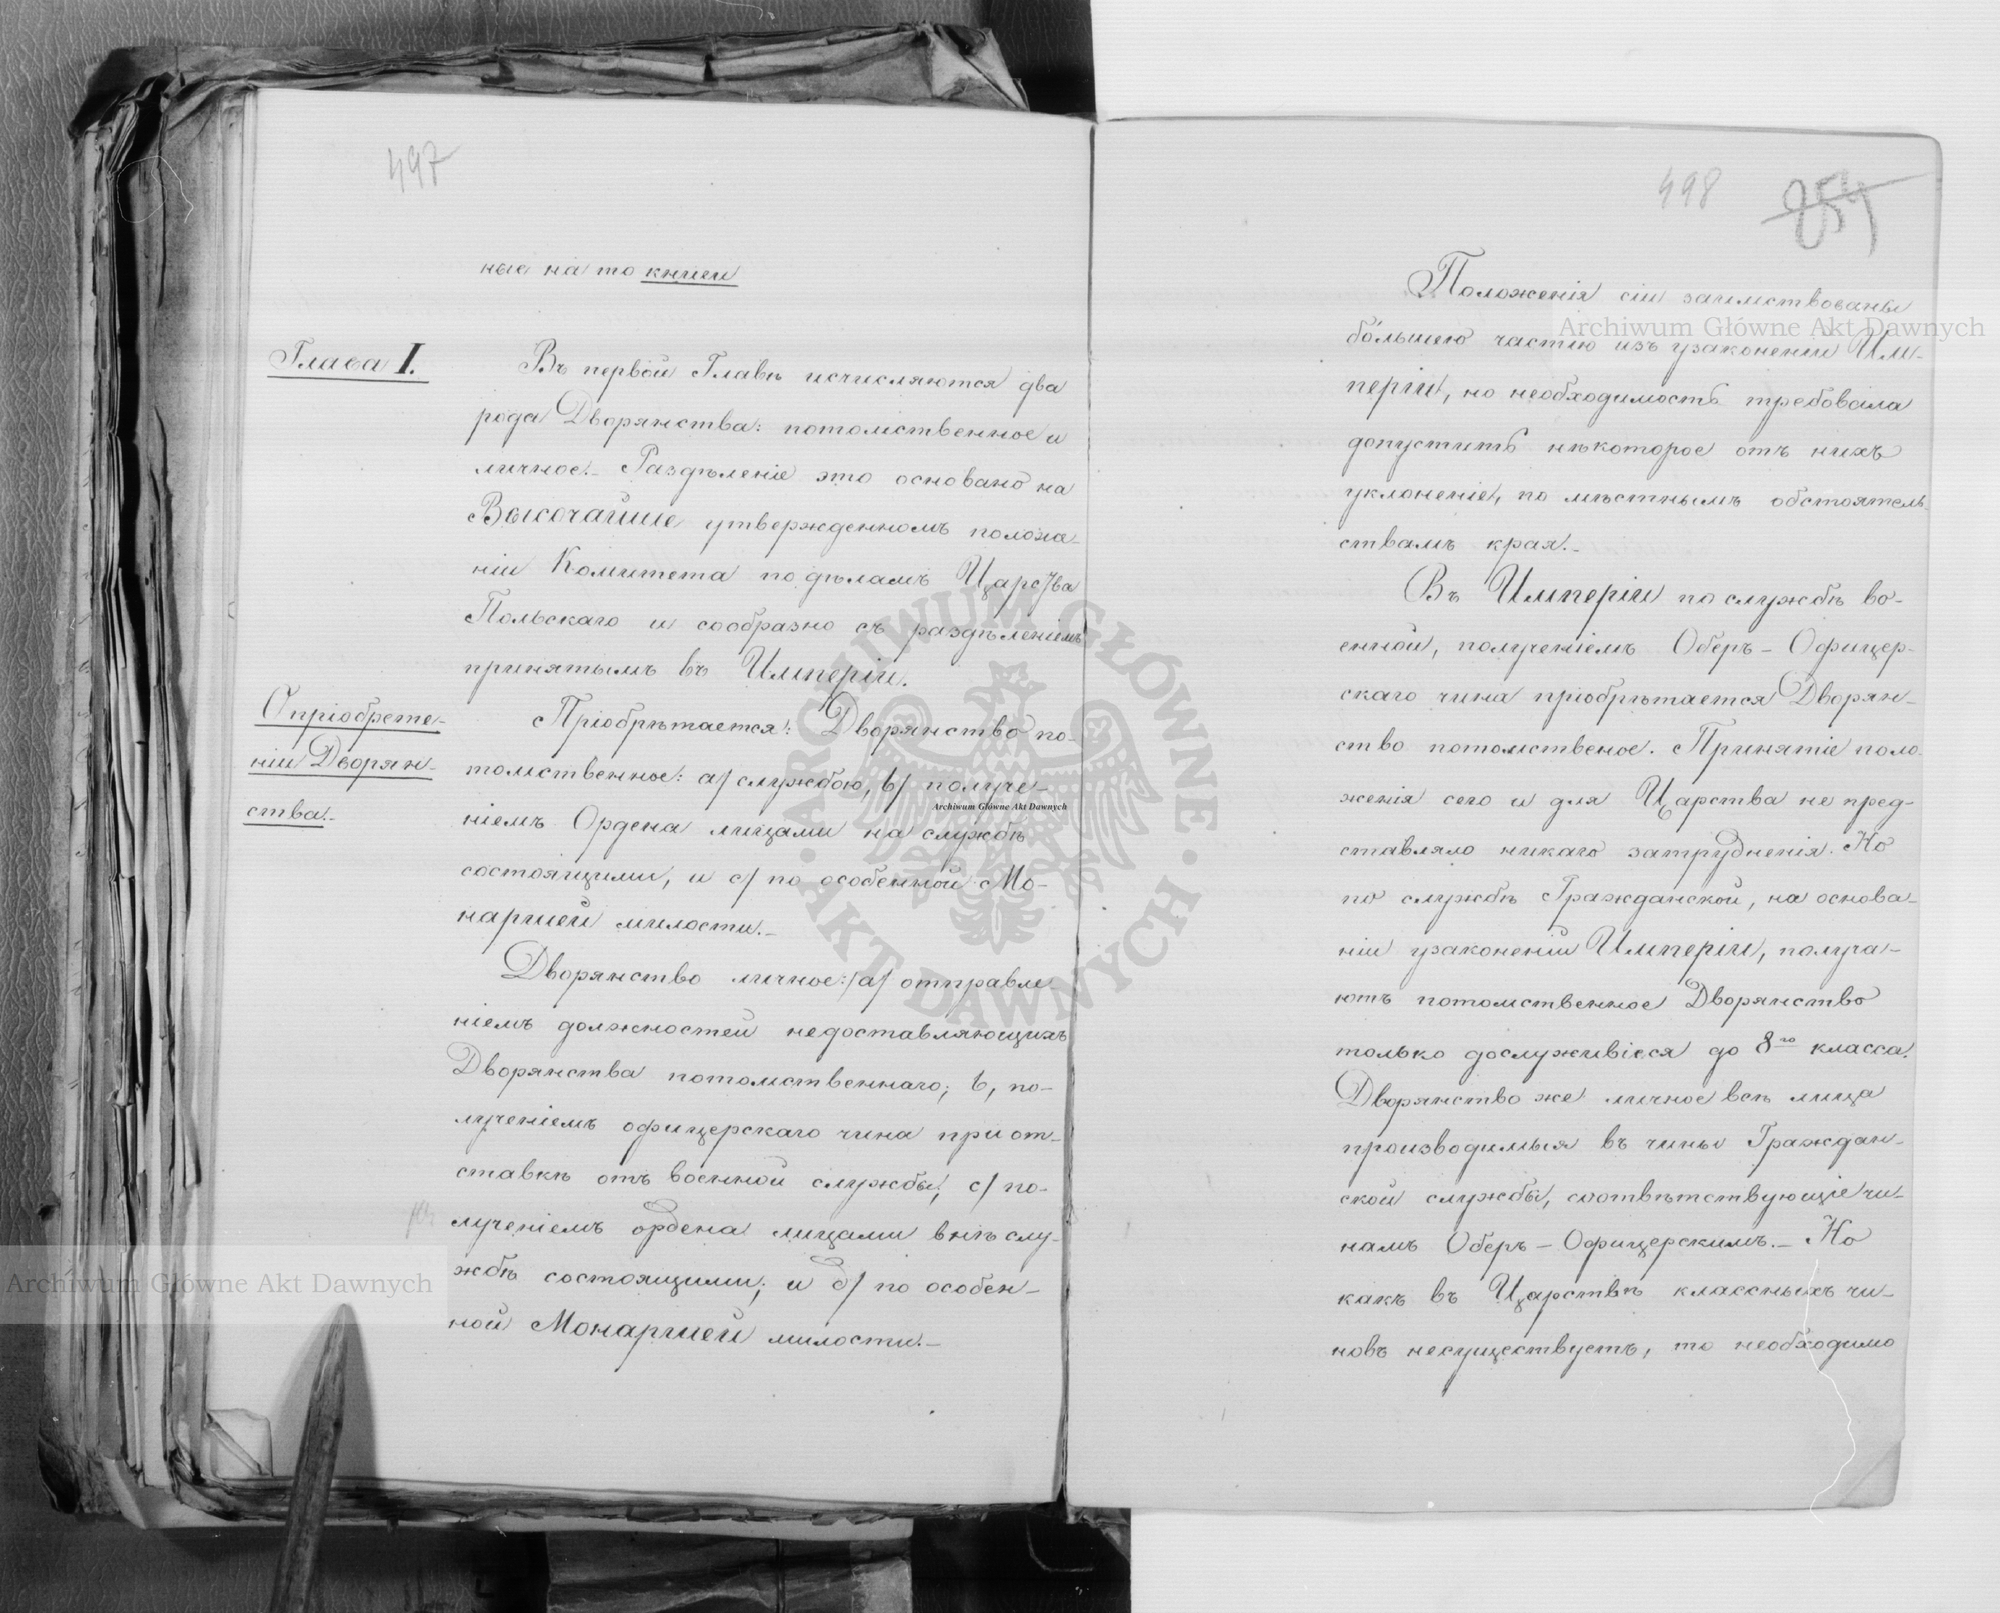 497
ные на то книги
Глава I.
Въ первой Главѣ исчисляются два
рода Дворянства: потомственное и
личное. Раздѣленіе это основано на
Высочайше утвержденномъ положе-
ніи Комитета по дѣламъ Царства
Польскаго и сообразно съ раздѣленіемъ
принятымъ въ Имперіи.
О пріобрете-
ніи Дворян-
ства.
Пріобрѣтается: Дворянство по-
томственное: а/ службою, b/ получе-
ніемъ Ордена лицами на службѣ
состоящими, и c/ по особенной Мо-
наршей милости.
Дворянство личное: /а/ отправле-
ніемъ должностей недоставляющихъ
Дворянства потомственнаго; b, по-
лученіемъ офицерскаго чина при от-
ставкѣ отъ военной службы; c/ по-
лученіемъ ордена лицами внѣ слу-
жбѣ состоящими; и d/ по особен-
ной Монаршей милости.
498
254
Положенія сіи заимствованы
бо́льшею частію изъ узаконеній Им-
періи, но необходимость требовала
допустить нѣкоторое отъ нихъ
уклоненіе, по мѣстнымъ обстоятель-
ствамъ края.
Въ Имперіи по службѣ во-
енной, полученіемъ Оберъ-Офицер-
скаго чина пріобрѣтается Дворян-
ство потомственое. Принятіе поло-
женія сего и для Царства не пред-
ставляло никаго затрудненія. Но
по службѣ Гражданской, на основа-
ніи узаконеній Имперіи, получа-
ютъ потомственное Дворянство
только дослужившіеся до 8го класса.
Дворянство же личное всѣ лица
производимыя въ чины Граждан-
ской службы, соотвѣтствующіе чи-
намъ Оберъ-Офицерскимъ. Но
какъ въ Царствѣ классныхъ чи-
новъ несуществуетъ, то необходимо
Archiwum Główne Akt Dawnych
Archiwum Główne Akt Dawnych
Archiwum Główne Akt Dawnych
ARCHIWUM GŁÓWNE
AKT DAWNYCH